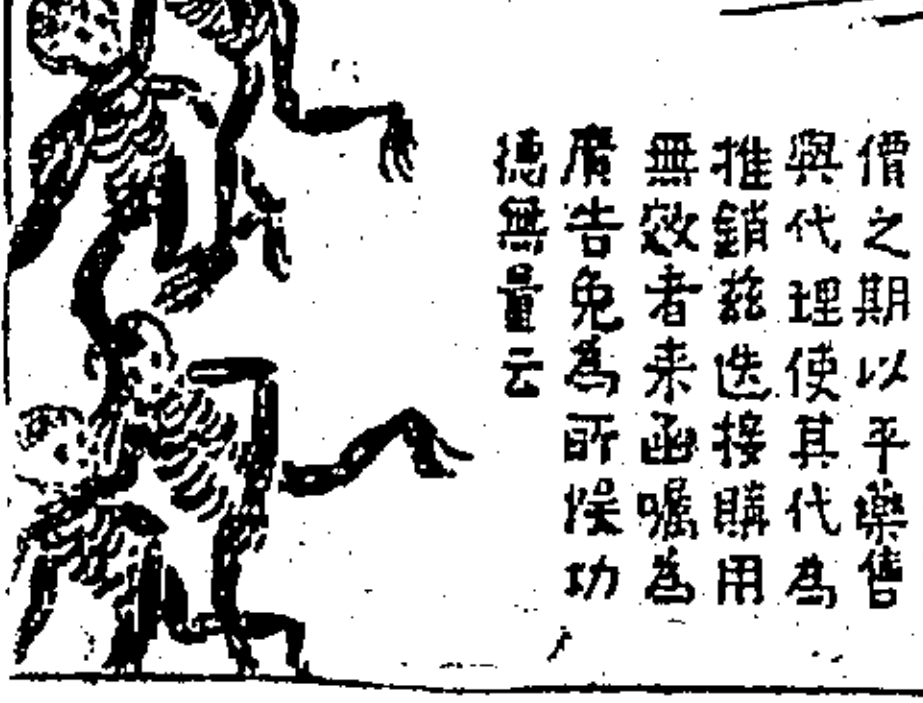 價之期以平藥售
與代理使其代為
推銷茲迭接購用
無效者来函嘱為
廣告免為所悞功
德無量云